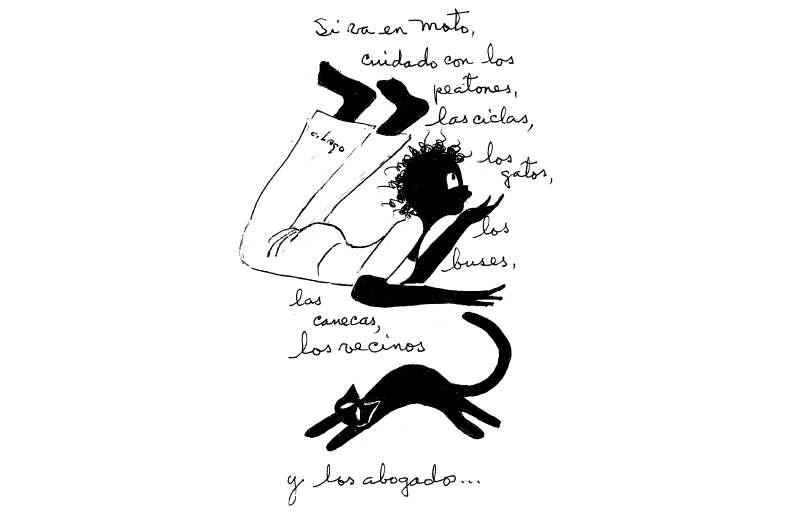 Si va en moto,
cuidado con los
peatones,
las ciclas,
los
gatos,
los
buses,
las
canecas,
los vecinos
y los abogados...
c. Lago